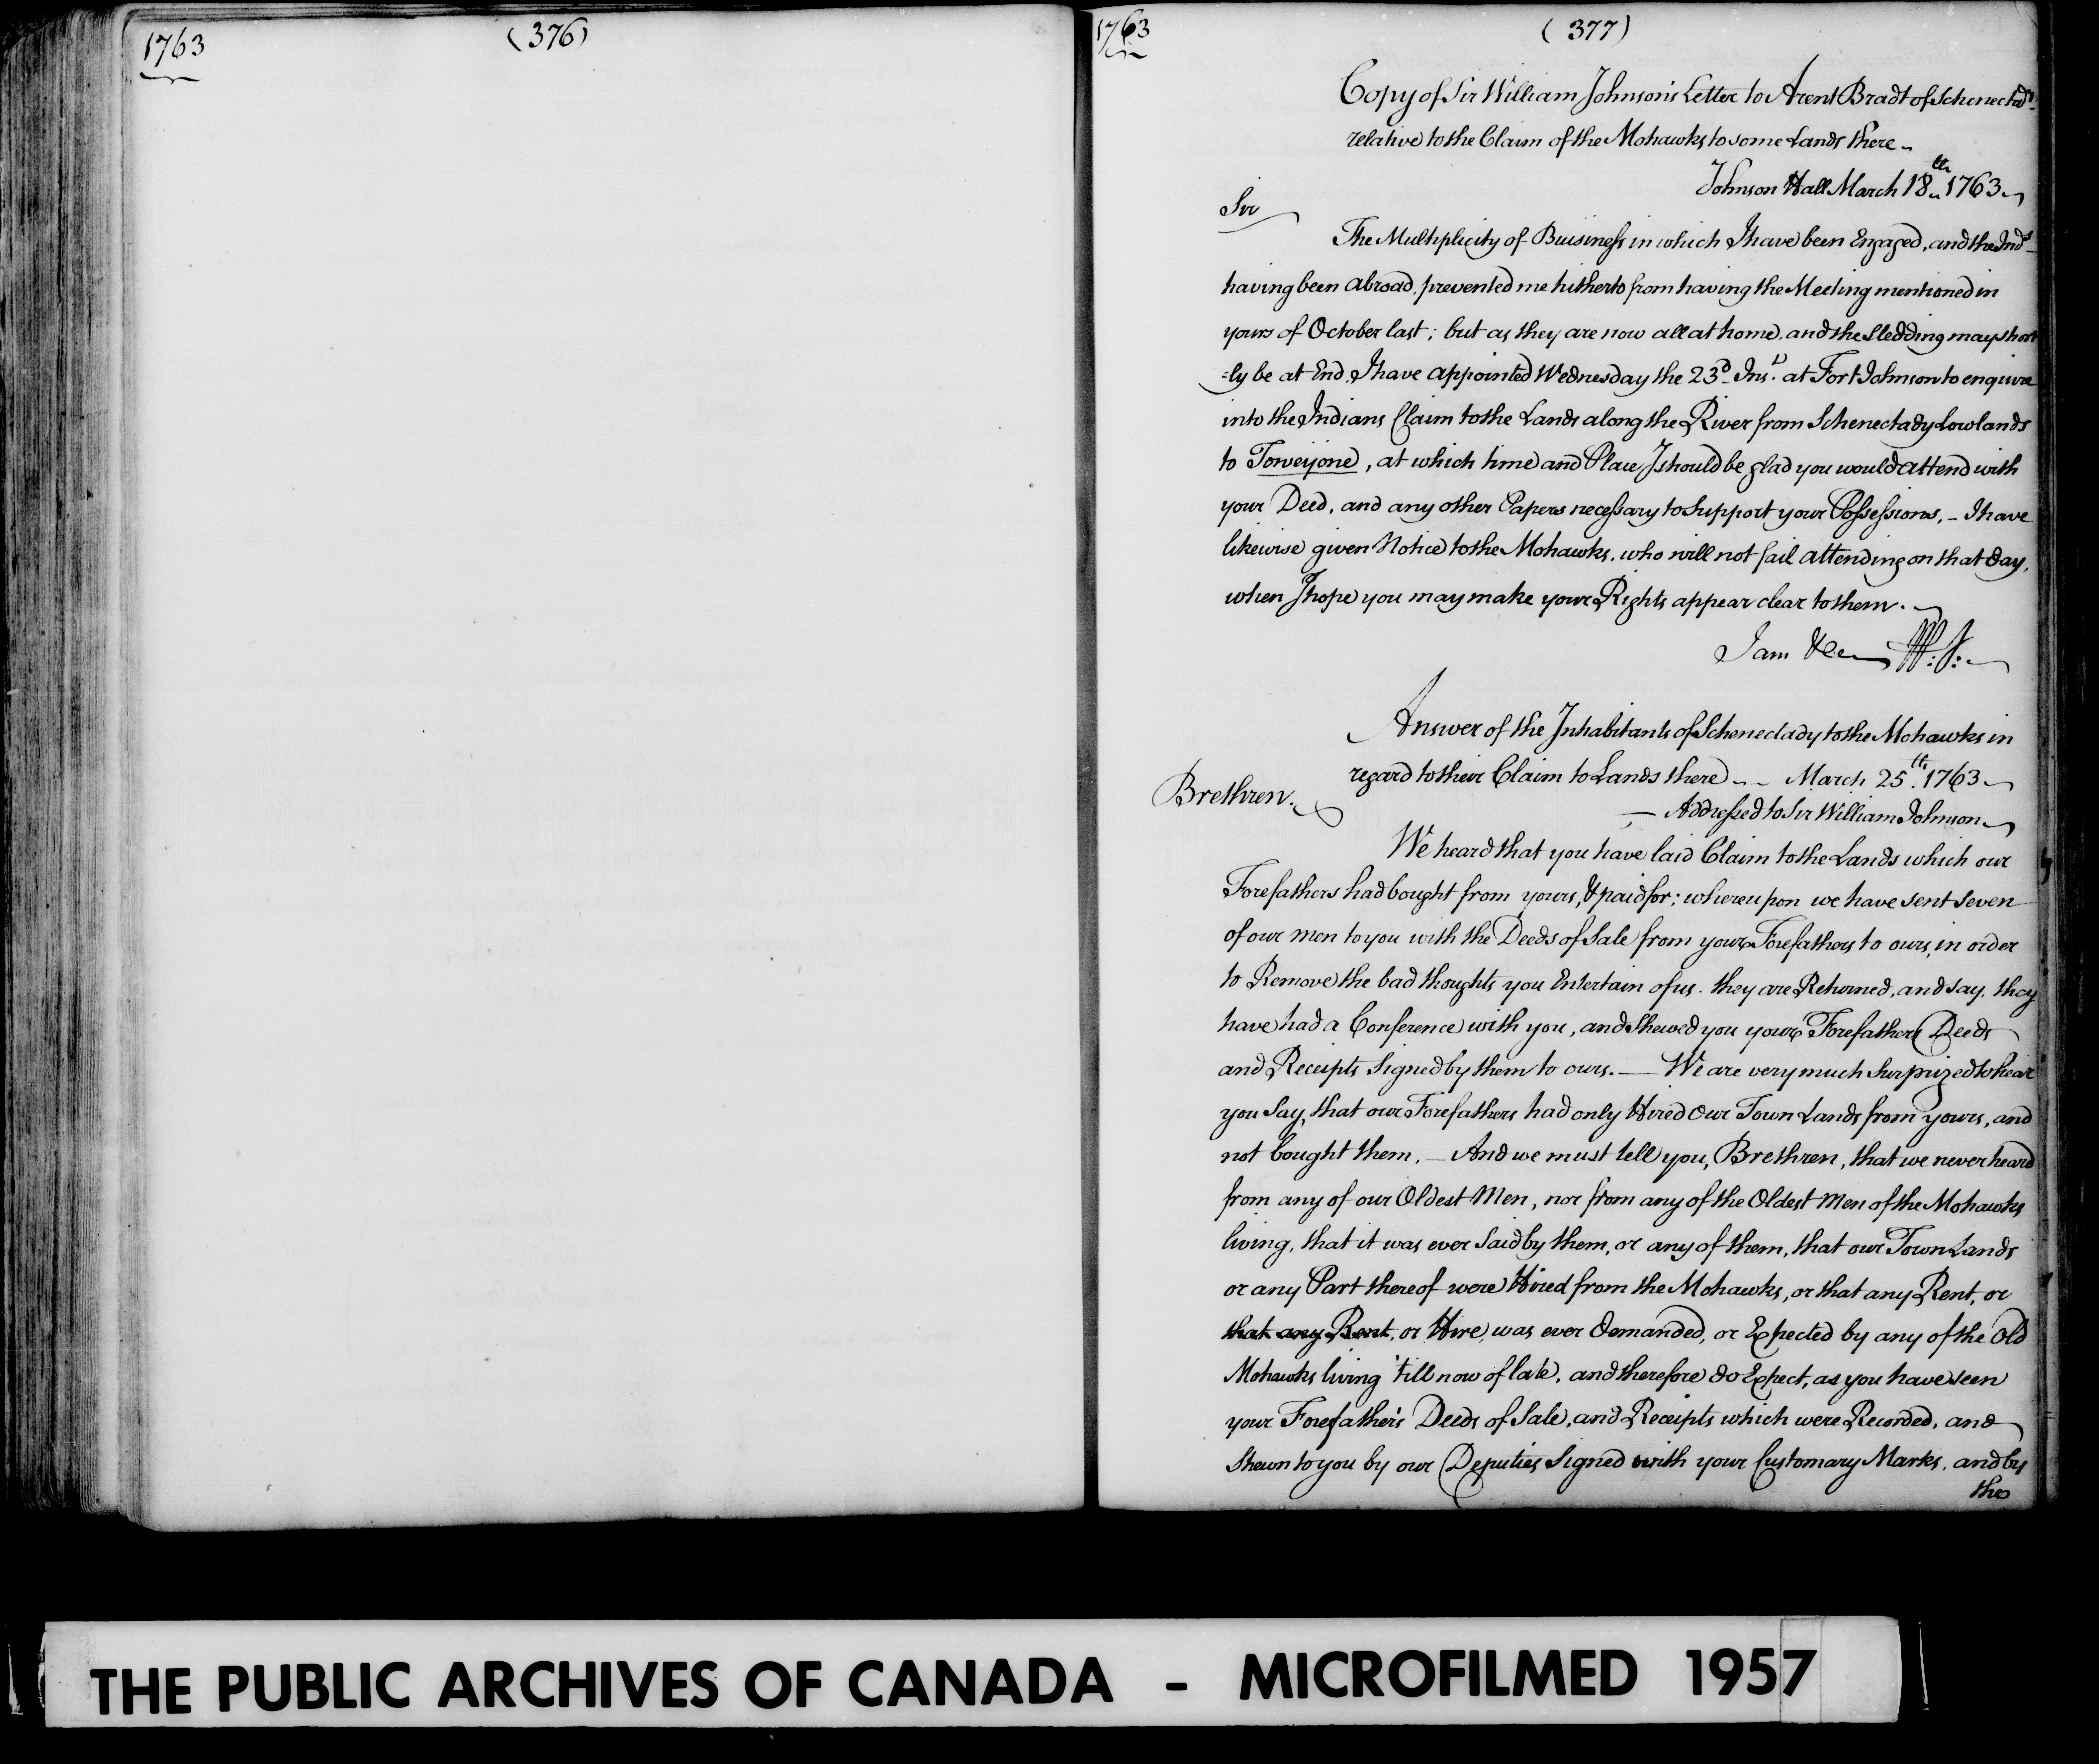 1763
(376)
1763
(377)
Copy of Sir William Johnson's Letter to Arent Bradt of Schenectady
relative to the Claim of the Mohawks to some Lands there
Johnson Hall March 18th 1763
Sir
The Multiplicity of Buisiness in which I have been Engaged, and the Inds
having been abroad, prevented me hitherto from having the Meeting mentioned in
yours of October last; but as they are now all at home, and the Sledding may short
=ly be at End, I have appointed Wednesday the 23d Inst. at Fort Johnson to enquire
into the Indians Claim to the Lands along the River from Schenectady Lowlands
to Toweyone, at which time and Place I should be glad you would attend with
your Deed, and any other Papers necessary to Support your Possessions, - I have
likewise given Notice to the Mohawks, who will not fail attending on that day,
when I hope you may make your Rights appear clear to them.
I am &ca W: J:
Answer of the Inhabitants of Schenectady to the Mohawks in
regard to their Claim to Lands there - - March 25th. 1763
— Addressed to Sir William Johnson
Brethren.
We heard that you have laid Claim to the Lands which our
Forefathers had bought from yours, & paid for; whereupon we have sent seven
of our men to you with the Deeds of Sale from your Forefathers to ours, in order
to Remove the bad thoughts you Entertain of us. they are Returned, and say, they
have had a Conference with you, and Shewed you your Forefathers Deeds
and Receipts Signed by them to ours. — We are very much Surprized to hear
you Say, that our Forefathers had only Hired our Town Lands from yours, and
not bought them. — And we must tell you, Brethren, that we never heard
from any of our Oldest Men, nor from any of the Oldest Men of the Mohawks
living, that it was ever Said by them, or any of them, that our Town Lands
or any Part thereof were Hired from the Mohawks, or that any Rent, or
that any Rent, or Hire, was ever demanded, or Expected by any of the Old
Mohawks living 'till now of late, and therefore do Expect, as you have seen
your Forefather's Deeds of Sale, and Receipts which were Recorded, and
Shewn to you by our Deputies Signed with your Customary Marks, and by
the
THE PUBLIC ARCHIVES OF CANADA - MICROFILMED 1957